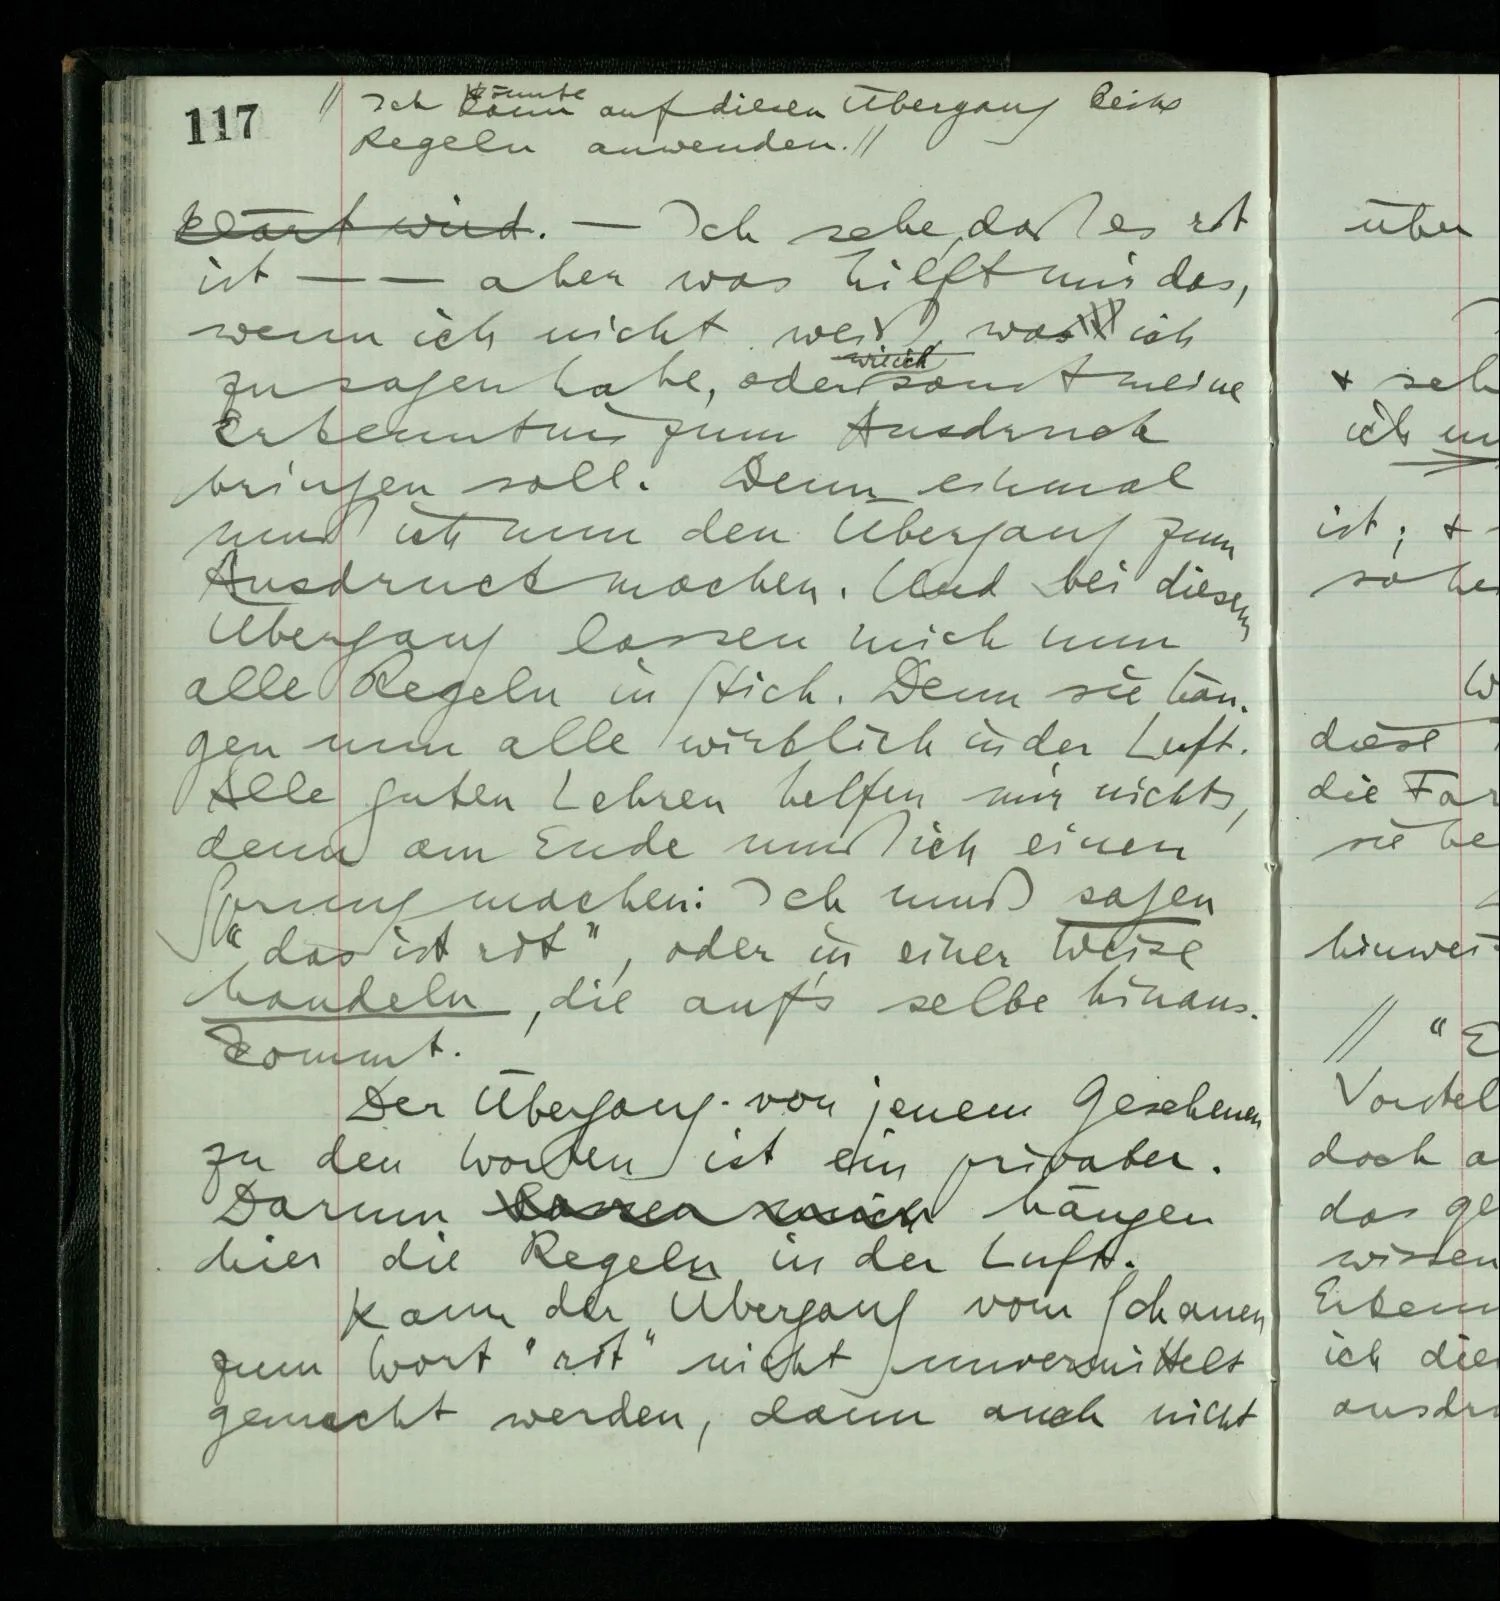 117
// Ich könnte kann auf diesen Übergang keine
Regeln anwenden. //
klärt wird. — Ich sehe, daß es rot
ist — — aber was hilft mir das,
wenn ich nicht weiß, was ich
zu sagen habe, oder sonst meine
Erkenntnis zum Ausdruck
bringen soll. Denn einmal
muß ich nun den Übergang zum
Ausdruck machen. Und bei diesem
Übergang lassen mich nun
alle Regeln in Stich. Denn sie hän-
gen nun alle wirklich in der Luft.
Alle guten Lehren helfen mir nichts,
denn am Ende muß ich einen
Sprung machen: Ich muß sagen
“das ist rot”, oder in einer Weise
handeln, die auf's selbe hinaus-
kommt.
Der Übergang von jenem Gesehenen
zu den Worten ist ein privater.
Darum lassen mich hängen
hier die Regeln in der Luft.
Kann der Übergang vom Schauen
zum Wort “rot” nicht unvermittelt
gemacht werden, dann auch nicht
über
+ seh
ich
ist; +
diese
die Far
sie be
hinwei
// “E
Vorstel
doch a
das ge
wissen
Erkenn
ich die
ausdrü